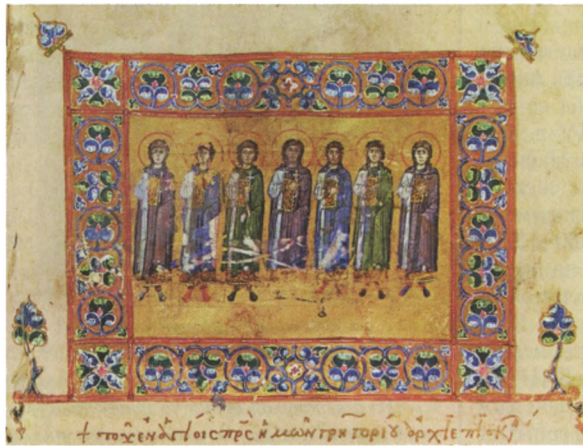 + τοῦ ἐν ἁγίοις πρς ἡμῶν γρηγορίου ἀρχιεπισκ